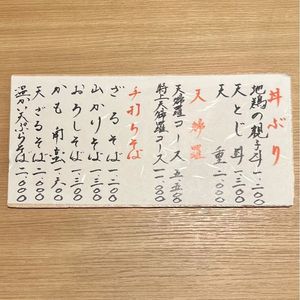 丼ぶり
地鶏の親子丼 一、二〇〇
天とじ丼 一、三〇〇
天重 二、〇〇〇
天婦羅
天婦羅コース 五、五〇〇
特上天婦羅コース 一一、〇〇〇
手打ちそば
ざるそば 一、二〇〇
山かけそば 一、三〇〇
おろしそば 一、三〇〇
かも南蛮 一、六〇〇
天ざるそば 二、〇〇〇
温かい天ぷらそば 二、〇〇〇